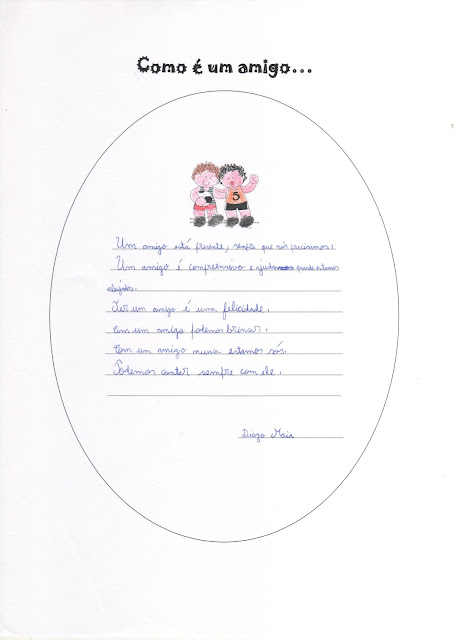 Como é um amigo...
5
Um amigo está presente, sempre que nós precisamos!
Um amigo é compreensivo e ajuda-nos quando estamos
aleijados.
Ter um amigo é uma felicidade.
Com um amigo podemos brincar.
Com um amigo nunca estamos sós.
Podemos contar sempre com ele.
Diogo Maia